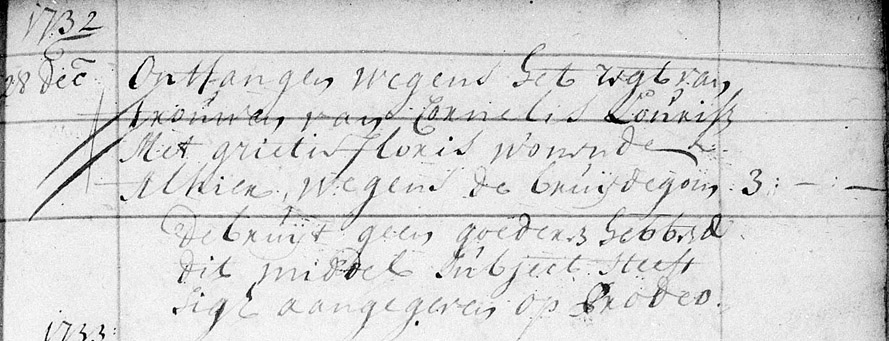 1732
28 Decr Ontfangen wegens het regt van
trouwen van Cornelis Louriss
Met grietis floris wonende
Alhier, wegens de bruijdegom 3:—:—
De bruijt geen goederen hebbend
dit middel Subject heeft
sigh aangegeven op Prodeo.
1733: